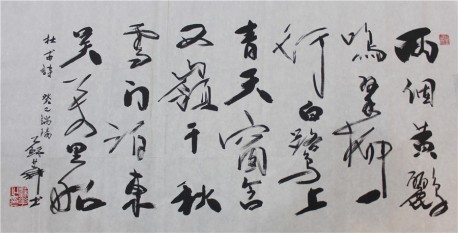 兩個黄鸝
鳴翠柳一
行白鷺上
青天窗含
西嶺千秋
雪门泊東
吴万里船
杜甫詩 癸巳端陽